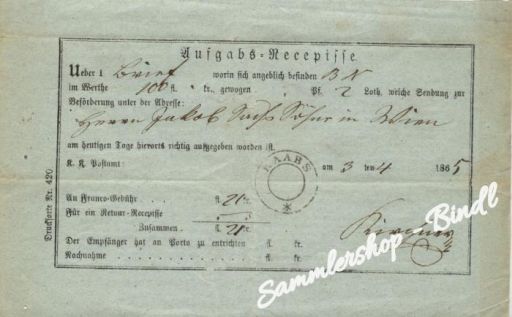 Aufgabs-Recepisse
Ueber 1 Brief worin sich angeblich befinden B N
im Werthe 100 fl. kr. gewogen Pf. 2 Loth, welche Sendung zur
Beförderung unter der Adresse:
Herrn Jakob Söhne in Wien
am heutigen Tage hierorts richtig aufgegeben worden ist.
K. K. Postamt: RAABS am 3 ten 4 1865
An Franco-Gebühr fl. kr.
Für ein Retour-Recepisse
Zusammen fl. kr.
Der Empfänger hat an Porto zu entrichten fl. kr.
Nachnahme fl. kr.
Drucksorte Nr. 420
Sammlershop - Bindl